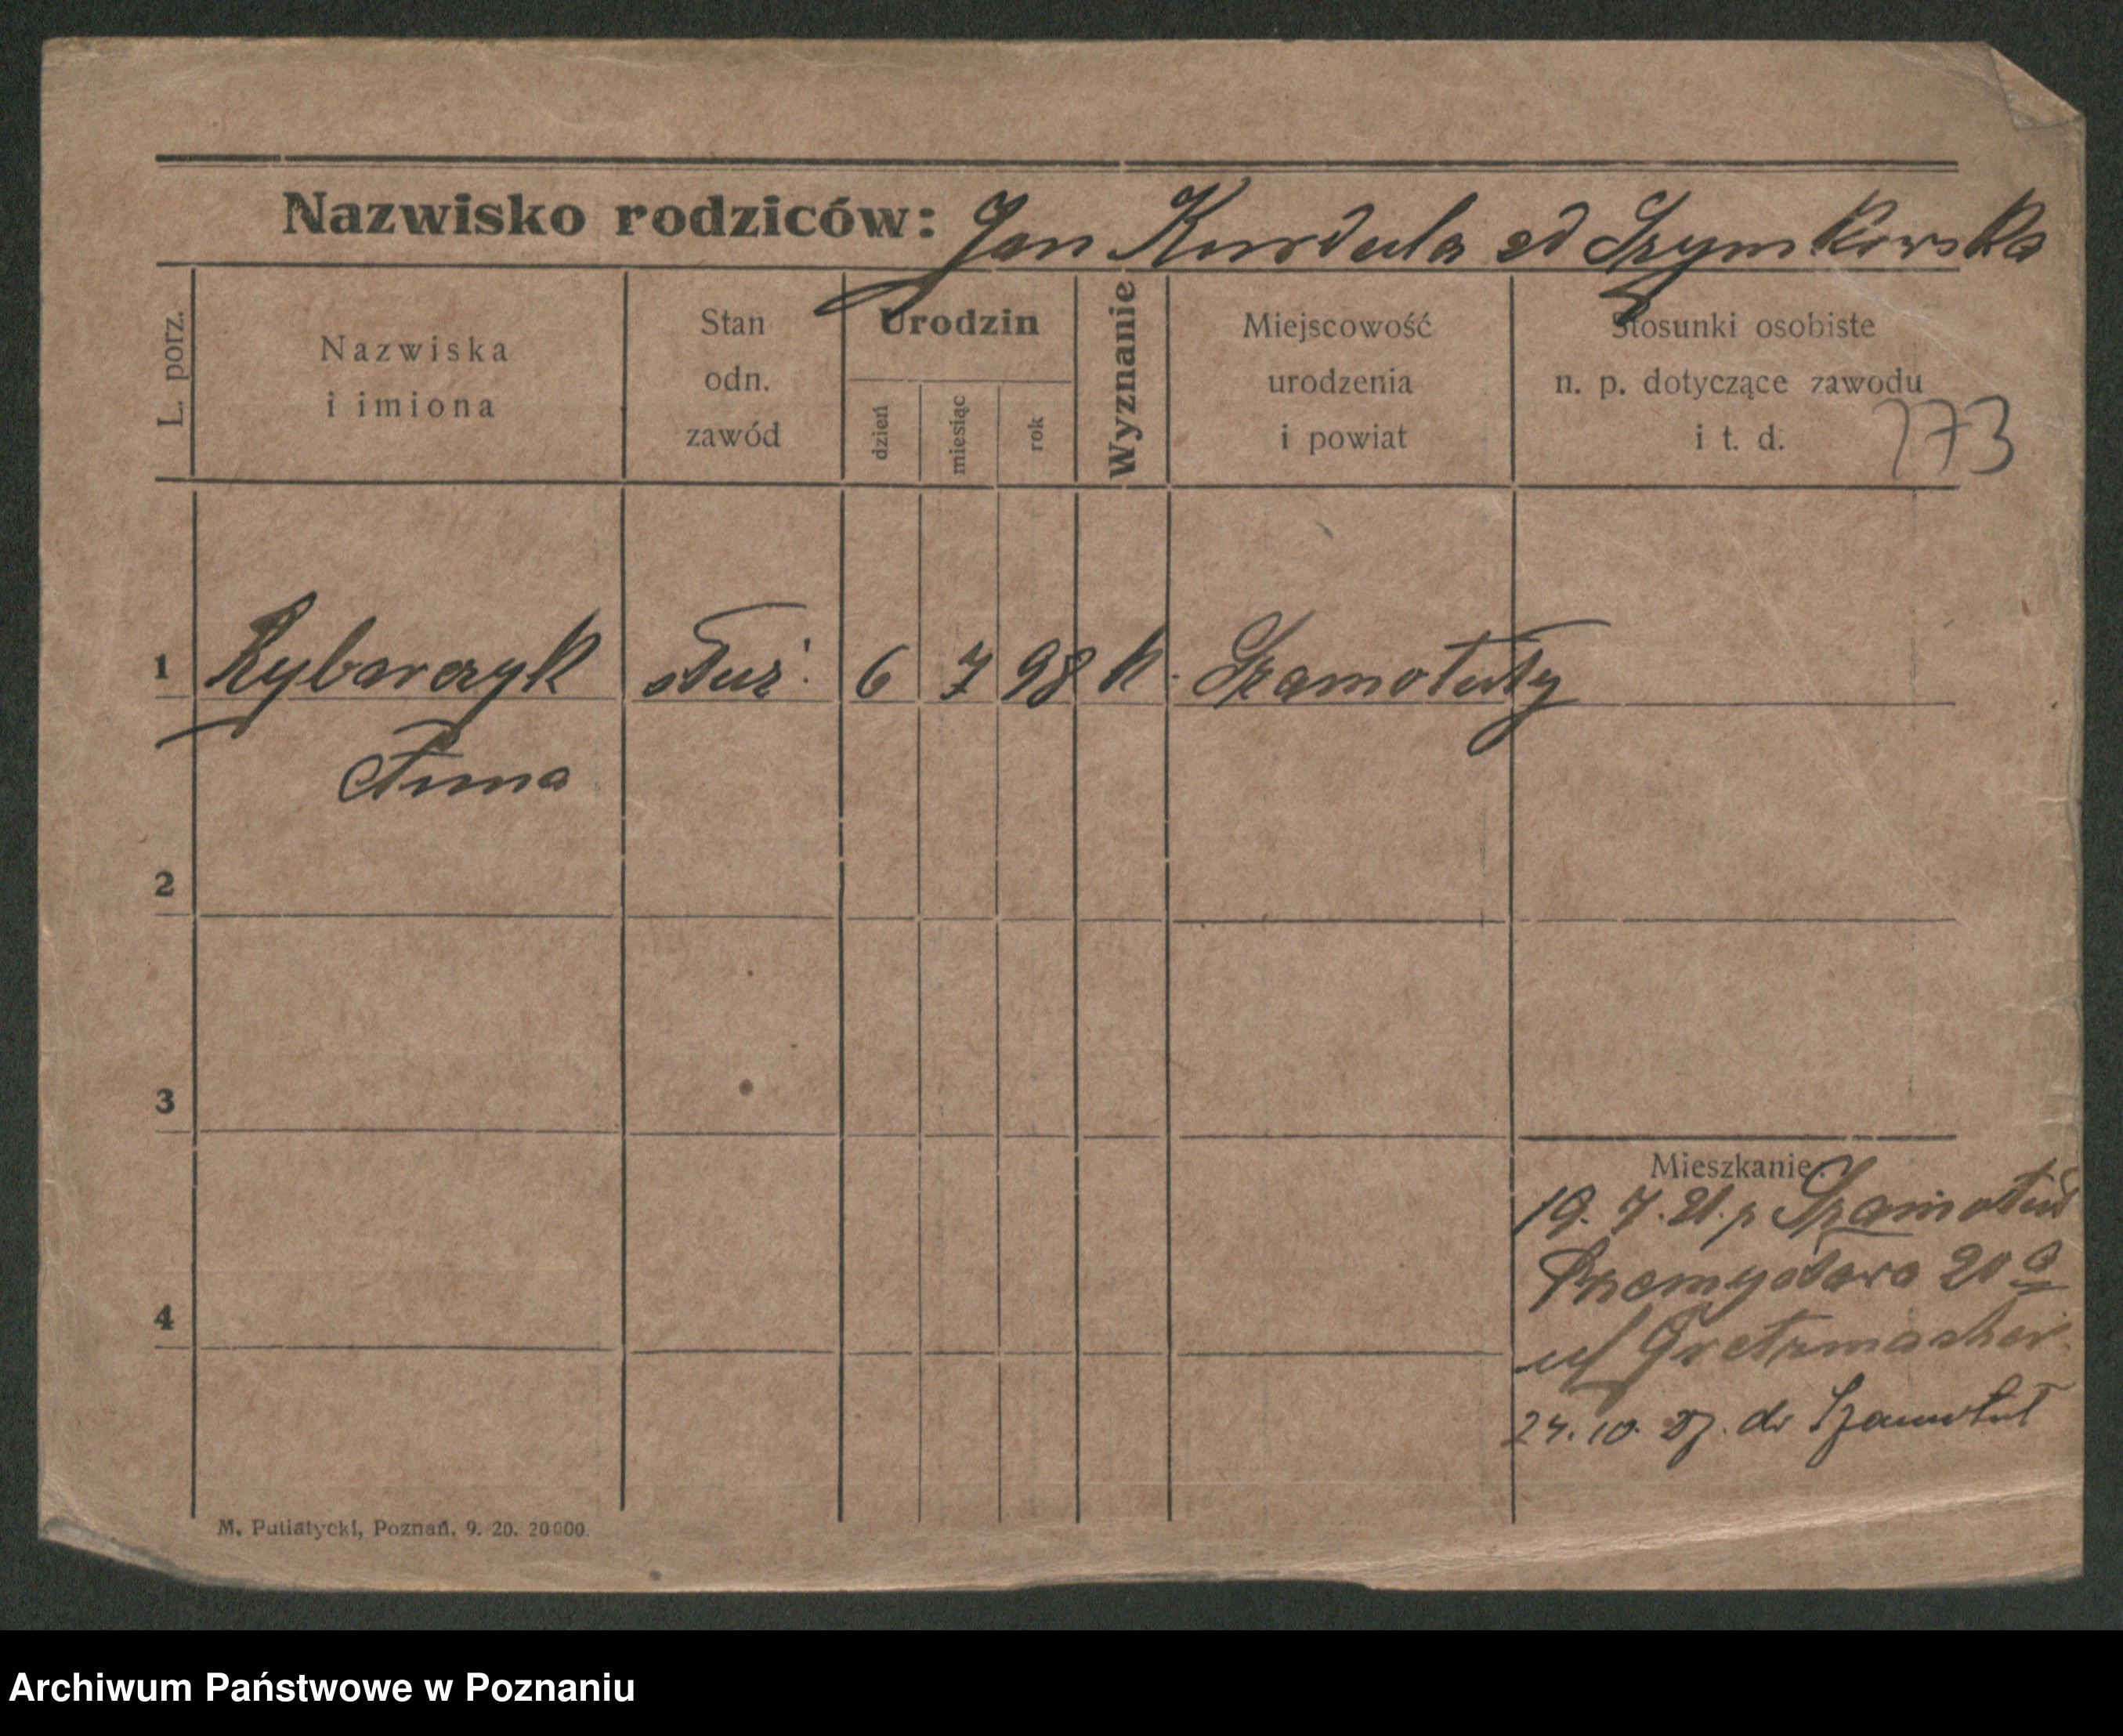 Nazwisko rodziców: Jan Kurdula ed Szymkowska
L. porz.
Nazwiska
i imiona
Stan
odn.
zawód
Urodzin
dzień
miesiąc
rok
Wyznanie
Miejscowość
urodzenia
i powiat
Stosunki osobiste
n. p. dotyczące zawodu
i t. d.
173
1 Rybarczyk służ. 6 7 98 k. Szamotuły
Anna
2
3
4
Mieszkanie:
19. 7. 21. p Szamotuł
Przemysława 20 a
24. 10. do Szamotuł
M. Putiatycki, Poznań. 9. 20. 20000.
Archiwum Państwowe w Poznaniu